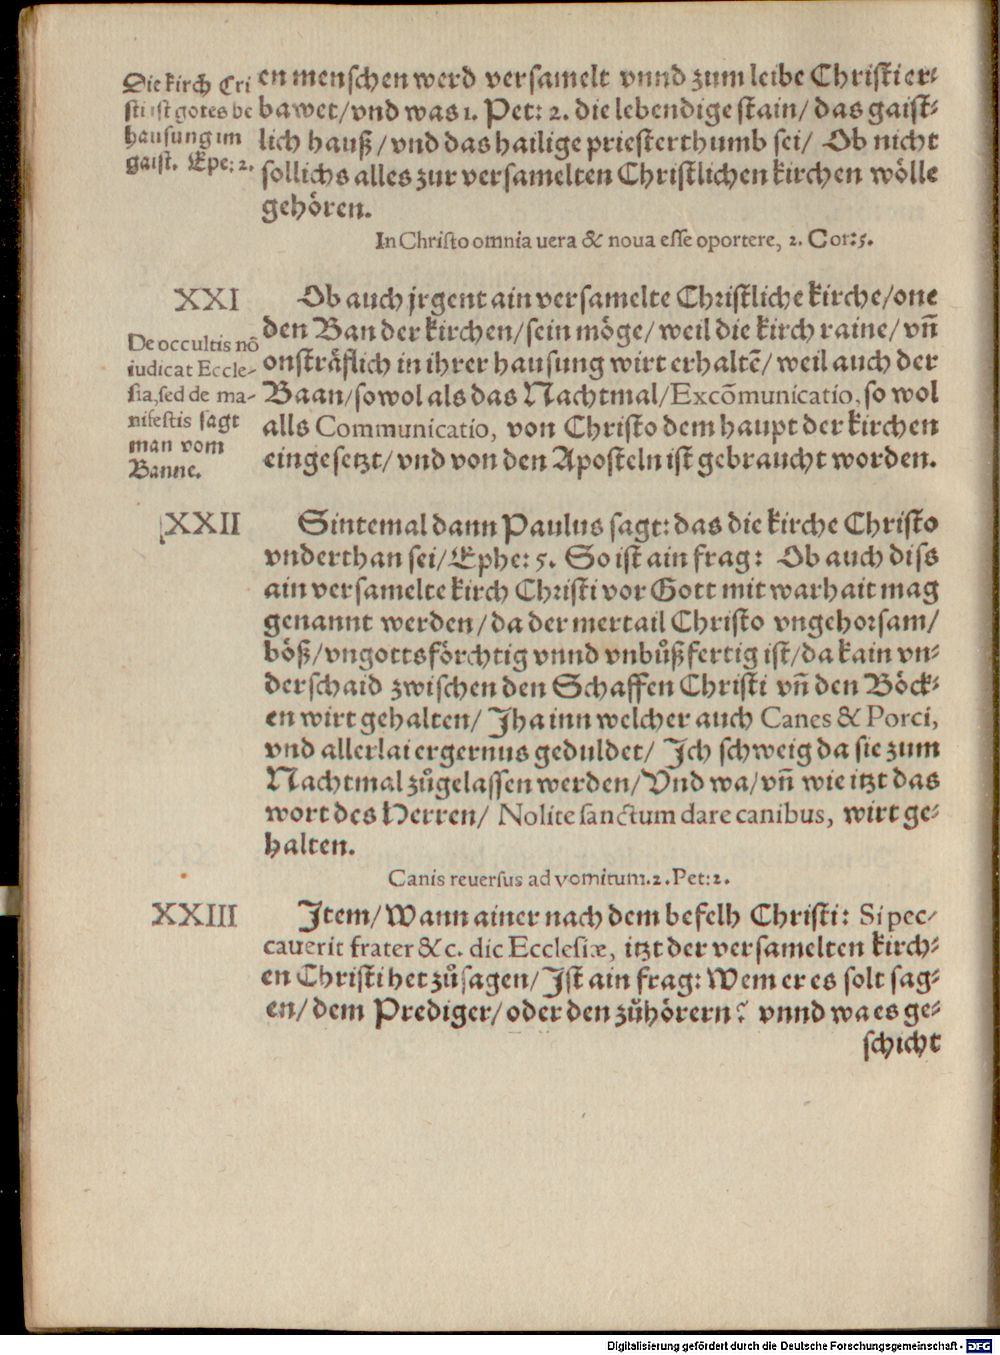 Die kirch Cri
sti ist gotes be
hausung im
gaist. Ephe: 2.
en menschen werd versamelt vnnd zum leibe Christi er-
bawet/vnd was 1. Pet: 2. die lebendige stain/ das gaist-
lich hauß/vnd das hailige priesterthumb sei/ Ob nicht
sollichs alles zur versamelten Christlichen kirchen wölle
gehören.
In Christo omnia uera & noua esse oportere, 2. Cor: 5.
XXI
De occultis nõ
iudicat Eccle-
sia, sed de ma-
nifestis sagt
man vom
Banne.
Ob auch jrgent ain versamelte Christliche kirche/one
den Ban der kirchen/sein möge/weil die kirch raine/vn̄
onsträflich in ihrer hausung wirt erhaltē/weil auch der
Baan/sowol als das Nachtmal/Excõmunicatio, so wol
alls Communicatio, von Christo dem haupt der kirchen
eingesetzt/vnd von den Aposteln ist gebraucht worden.
XXII
Sintemal dann Paulus sagt: das die kirche Christo
vnderthan sei/Ephe: 5. So ist ain frag: Ob auch diss
ain versamelte kirch Christi vor Gott mit warhait mag
genannt werden/da der mertail Christo vngehorsam/
böß/vngottsförchtig vnnd vnbůßfertig ist/da kain vn-
derschaid zwischen den Schaffen Christi vn̄ den Böck-
en wirt gehalten/ Jha inn welcher auch Canes & Porci,
vnd allerlai ergernus geduldet/ Jch schweig da sie zum
Nachtmal zůgelassen werden/Vnd wa/vn̄ wie itzt das
wort des Herren/ Nolite sanctum dare canibus, wirt ge-
halten.
Canis reuersus ad vomitum. 2. Pet: 2.
XXIII
Jtem/Wann ainer nach dem befelh Christi: Si pec-
cauerit frater &c. dic Ecclesiæ, itzt der versamelten kirch-
en Christi het zů sagen/Jst ain frag: Wem er es solt sag-
en/dem Prediger/oder den zůhörern? vnnd wa es ge-
schicht
Digitalisierung gefördert durch die Deutsche Forschungsgemeinschaft - DFG